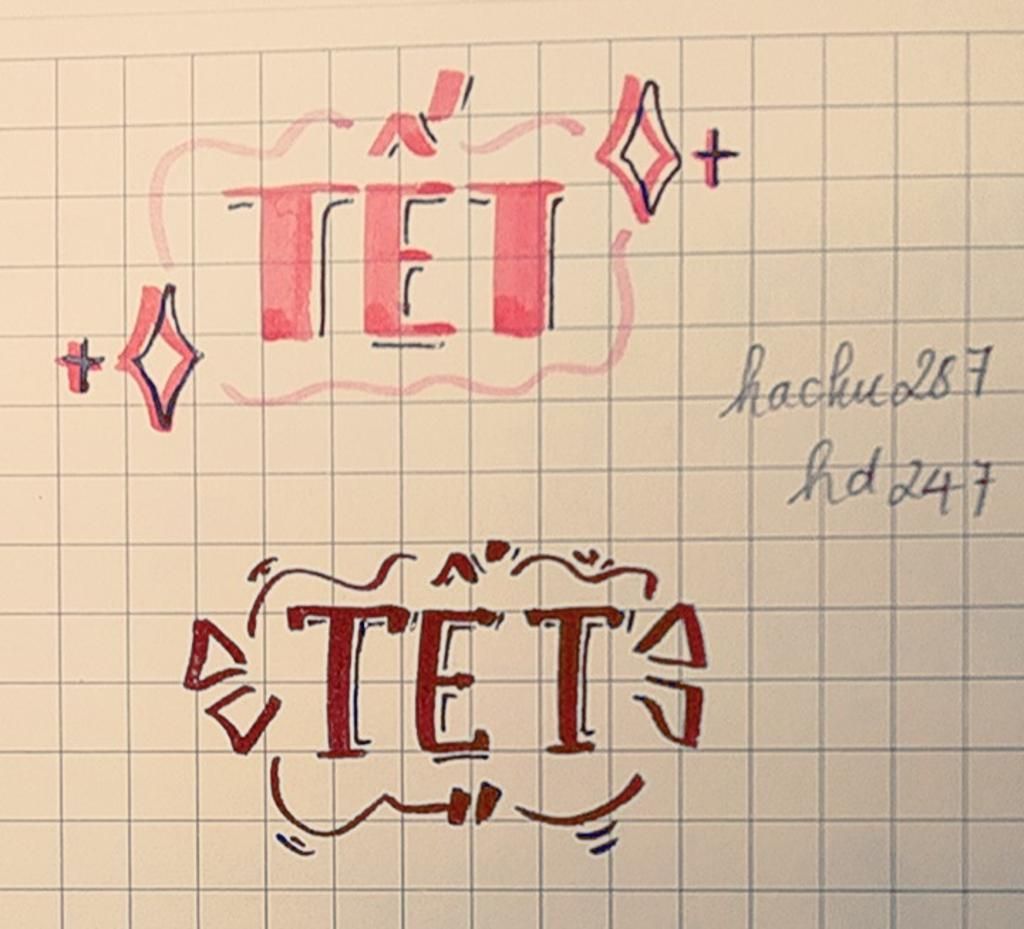 TẾT
hachu287
hd247
TẾT